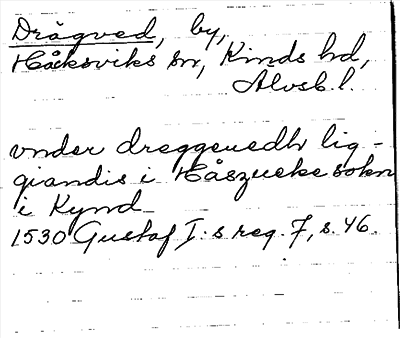 Drågved, by,
Håksviks sn, Kinds hd,
Älvsb. l.
vnder dreggeuedh lig-
giandis i Håszueke sokn
i Kynd
1530 Gustaf I:s reg. 7, s. 46.